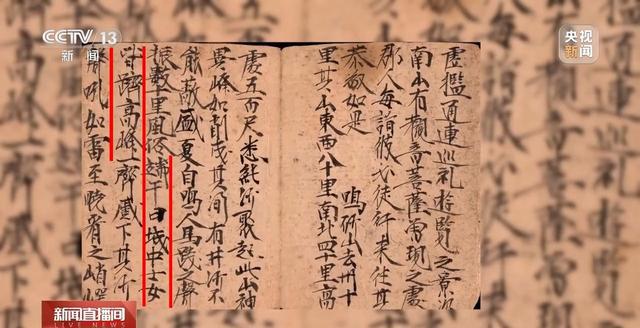 CCTV 13
新闻
央视
新闻
虛檻通連巡禮遊覽之景次
南山有觀音菩薩曾現之處
郡人每詣彼必徒行來往其
恭敬如是 鳴砂山去州十
里其山東西八十里南北四十里高
處五百尺悉純沙聚起此山神
異峰如削成其間有井沙不
能蔽盛夏自鳴人馬踐之聲
振數十里風俗端午日城中士女
皆躋高峰一齊蹙下其沙
聲吼如雷至曉看之峭崿
新闻直播间
LIVE NEWS